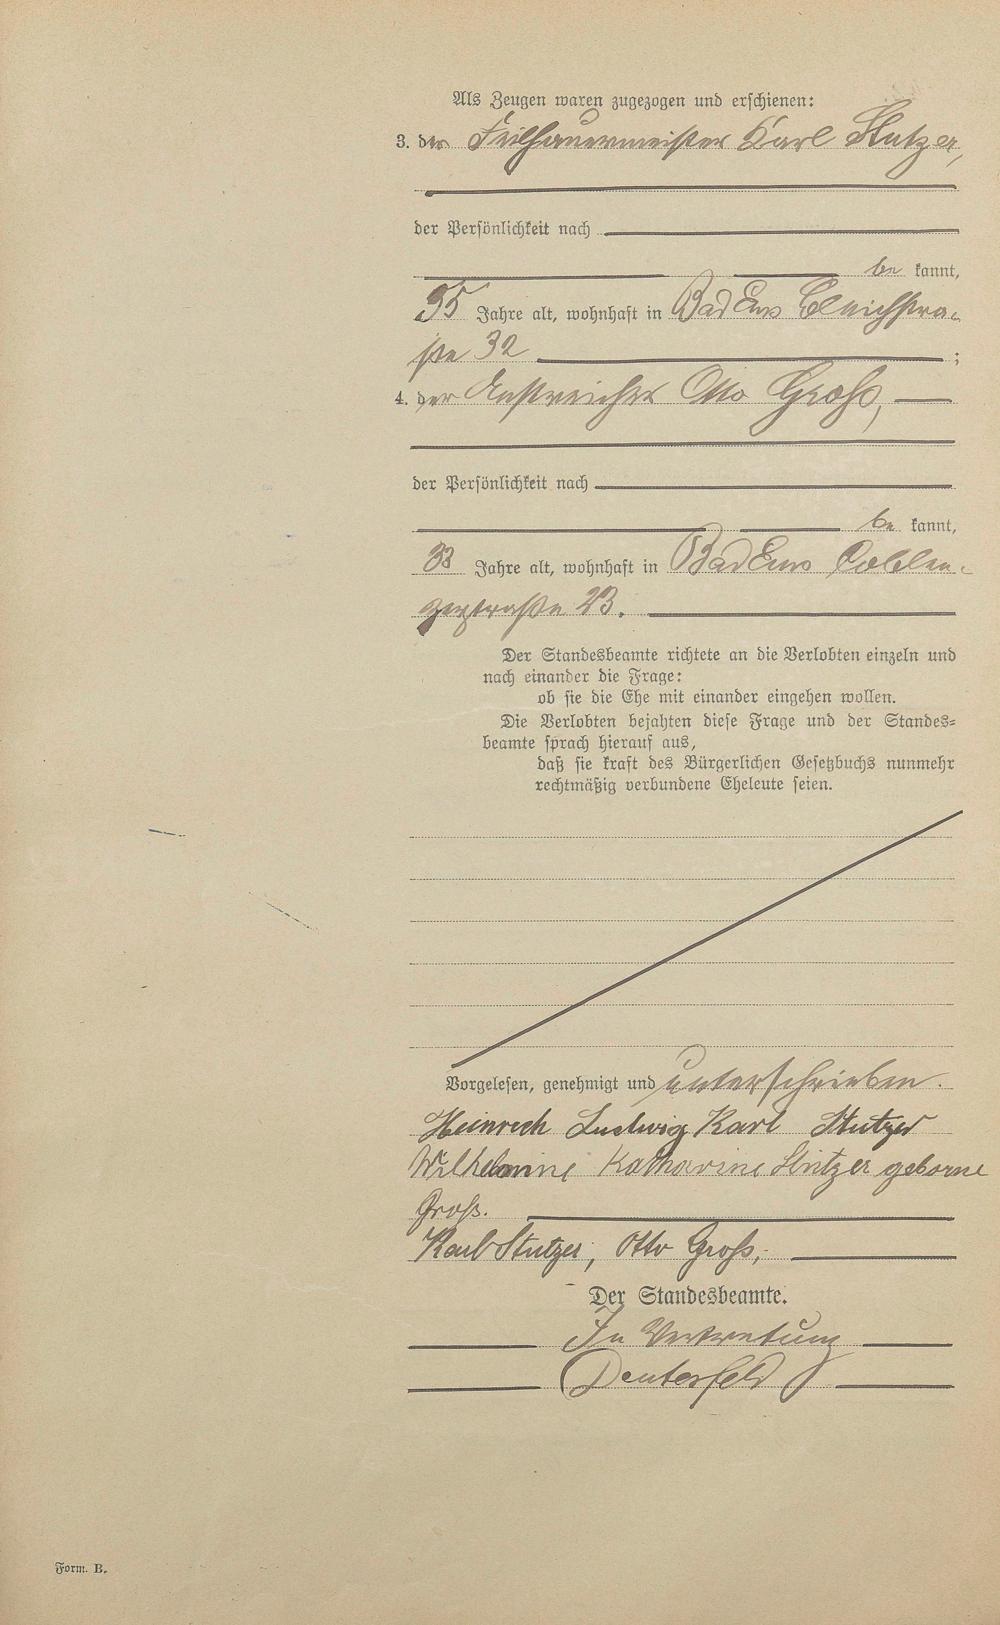 Als Zeugen waren zugezogen und erschienen:
3. der Feilhauermeister Karl Stutzer,
der Persönlichkeit nach
be kannt,
Jahre alt, wohnhaft in Bad Ems Bleichstra-
ße 32 ;
4. der Anstreicher Otto Groß,
der Persönlichkeit nach
be kannt,
33 Jahre alt, wohnhaft in Bad Ems Coblen-
zerstraße 23.
Der Standesbeamte richtete an die Verlobten einzeln und
nach einander die Frage:
ob sie die Ehe mit einander eingehen wollen.
Die Verlobten bejahten diese Frage und der Standes-
beamte sprach hierauf aus,
daß sie kraft des Bürgerlichen Gesetzbuchs nunmehr
rechtmäßig verbundene Eheleute seien.
Vorgelesen, genehmigt und unterschrieben.
Heinrich Ludwig Karl Stutzer
Wilhelmine Katharine Stutzer geborne
Groß.
Karl Stutzer, Otto Groß,
Der Standesbeamte.
In Vertretung
Form. B.